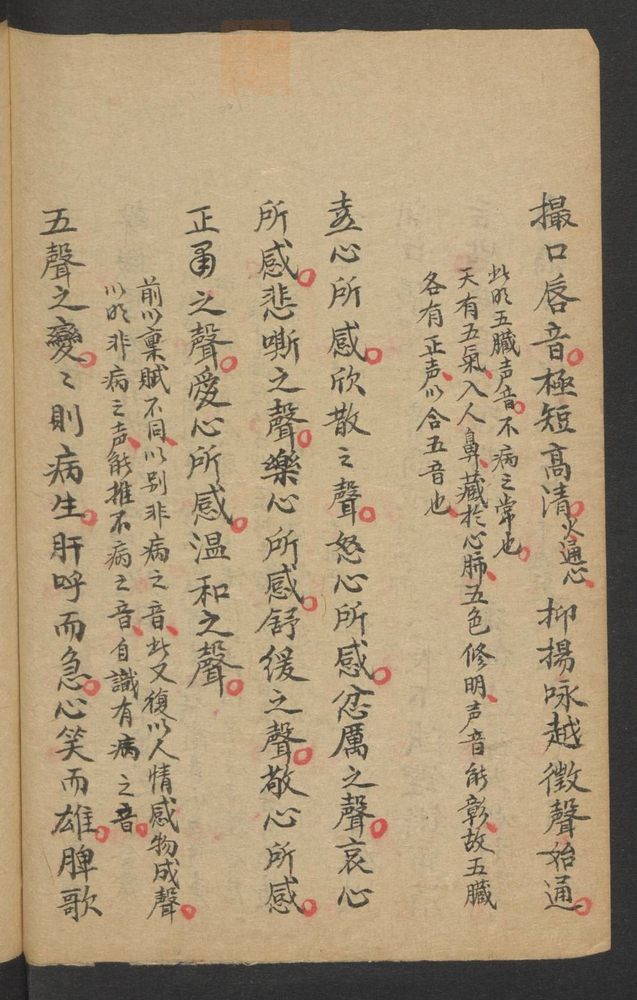 撮口唇音。極短高清。火通心、抑揚咏越徵聲始通。
此明五臟声音。不病之常也。
天有五氣、入人鼻、藏於心肺、五色修明、声音能彰、故五臟
各有正声、以合五音也。
喜心所感。欣散之聲。怒心所感。忿厲之聲。哀心
所感。悲嘶之聲。樂心所感。舒緩之聲。敬心所感。
正肅之聲。愛心所感。温和之聲。
前以稟賦不同、以别非病之音、此又復以人情感物成聲。
以明非病之声、能推不病之音、自識有病之音。
五聲之變。〻則病生。肝呼而急。心笑而雄。脾歌